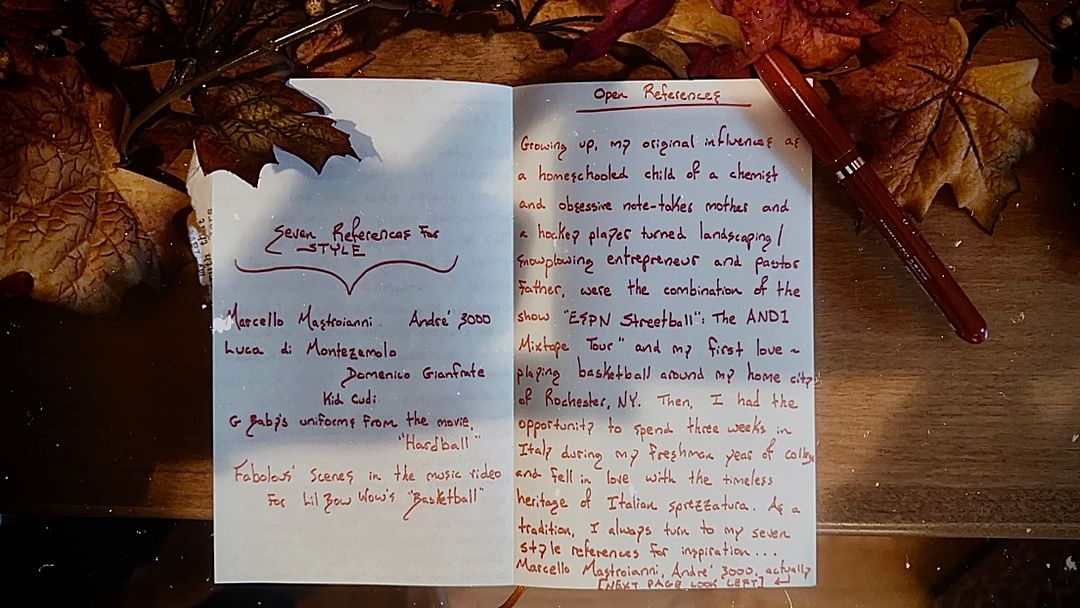 Seven References For
STYLE
Marcello Mastroianni André 3000
Luca di Montezemolo
Domenico Gianfrate
Kid Cudi
G Baby's uniforms from the movie,
"Hardball"
Fabolous' scenes in the music video
For Lil Bow Wow's "Basketball"
Open References
Growing up, my original influences as
a homeschooled child of a chemist
and obsessive note-taker mother and
a hockey player turned landscaping/
snowplowing entrepreneur and pastor
father, were the combination of the
show "ESPN Streetball": The AND1
Mixtape Tour" and my first love ~
playing basketball around my home city
of Rochester, NY. Then, I had the
opportunity to spend three weeks in
Italy during my freshman year of college
and fell in love with the timeless
heritage of Italian sprezzatura. As a
tradition, I always turn to my seven
style references for inspiration...
Marcello Mastroianni, André 3000, actually
[NEXT PAGE LOOK LEFT]